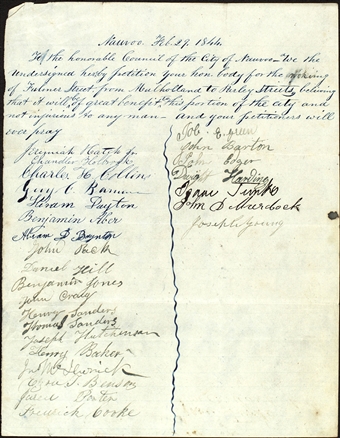 Nauvoo. Feb 29. 1844.
To the honorable Council of the City of Nauvoo - We the
undersigned herby petition your hon. body for the opening
of Fulmer Street from Mulholland to Perley Streets, believing
that it will of great benefit this portion of the city and
not injurious to any man - and your petitioners will
ever pray
Jeremiah Hatch Jr
Chandler Holbrook
Charles H.
Guy C.
Hiram Payton
Benjamin Aber
Abram D Boynton
John Pack
Daniel Hill
Benjamin Jones
John Craig
Henry Sanders
Thomas Sanders
Joseph Hutchinson
Henry Baker
Ezra T. Benson
Jared Porter
Fredrick Cooke
Job Green
John Barton
John Edger
Dwight Harding
John D Murdock
Joseph Young